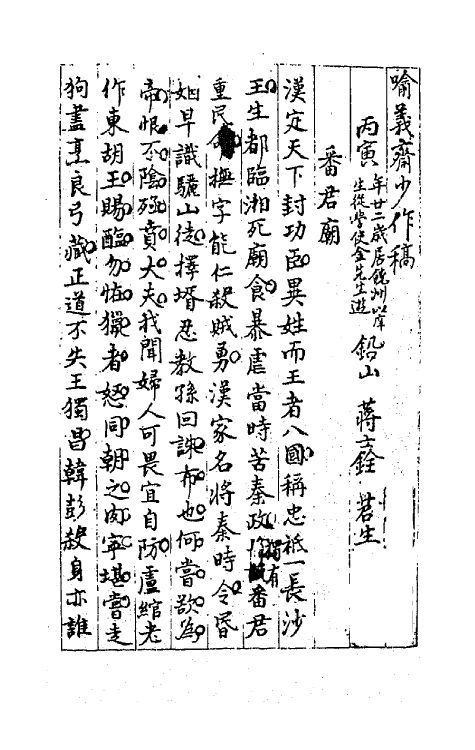 喻義齋少作稿
丙寅 年廿二歲居饒州以庠生從學使金先生遊 鉛山 蔣士銓 苕生
番君廟
漢定天下封功臣異姓而王者八國稱忠祇一長沙
王生都臨湘死廟食暴虐當時苦秦政獨有番君
重民撫字能仁殺賊勇漢家名將秦時令昏
姻早識驪山徒擇壻忍教孫回誅布也何嘗欲為
帝恨不陰殛賁大夫我聞婦人可畏宜自防盧綰老
作東胡王賜醢勿怖獵者怒同朝之肉寧堪嘗走
狗盡烹良弓藏正道不失王獨昌韓彭殺身亦誰